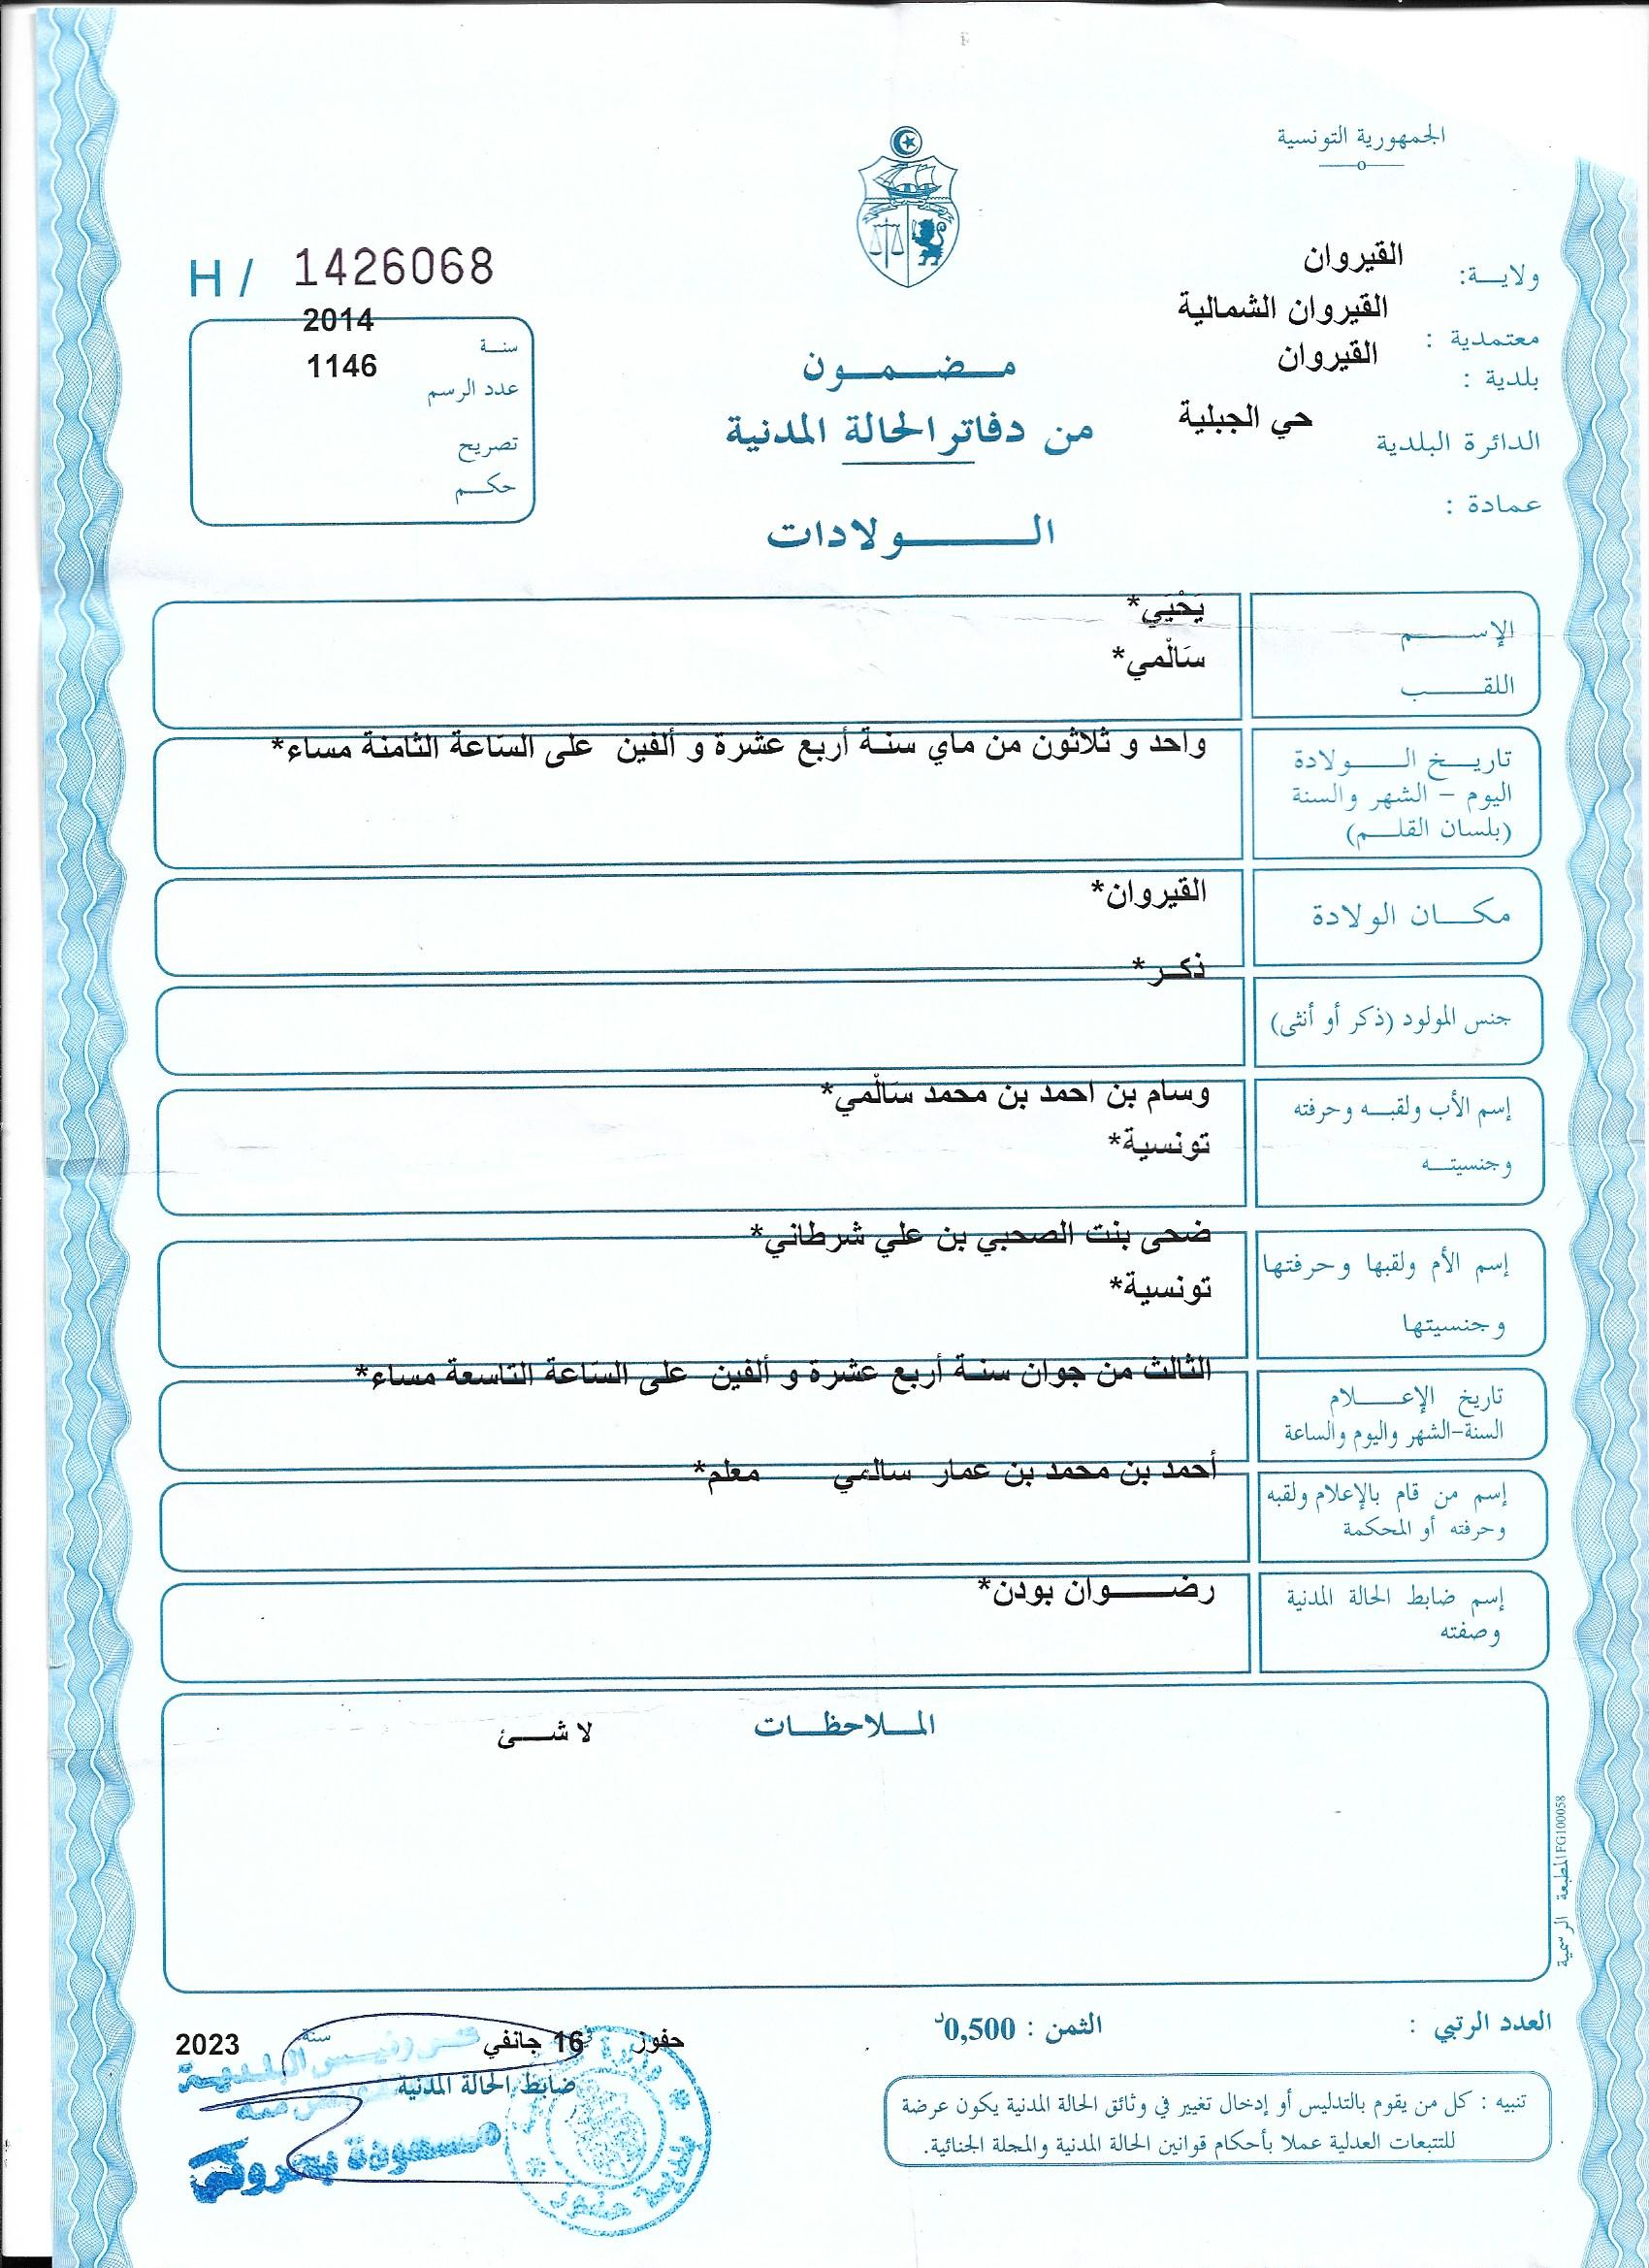 الجمهورية التونسية
ولايـــة: القيروان
معتمدية : القيروان الشمالية
بلدية : القيروان
الدائرة البلدية حي الجبلية
عمادة :
H / 1426068
سنـة 2014
عدد الرسم 1146
تصريح
حكـــم
مـــضـــمـــون
من دفاتر الحالة المدنية
الـــــــولادات
الإســـــــم يَحْيَي*
اللقـــــب سَالْمي*
تاريـــخ الـــــولادة واحد و ثلاثون من ماي سنة أربع عشرة و ألفين على الساعة الثامنة مساء*
اليوم – الشهر والسنة
(بلسان القلـــم)
مكـــان الولادة القيروان*
جنس المولود (ذكر أو أنثى) ذكـر*
إسم الأب ولقبـــه وحرفته وسام بن احمد بن محمد سَالْمي*
وجنسيتـــه تونسية*
إسم الأم ولقبها وحرفتها ضحى بنت الصحبي بن علي شرطاني*
وجنسيتها تونسية*
تاريخ الإعـــــلام الثالث من جوان سنة أربع عشرة و ألفين على الساعة التاسعة مساء*
السنة-الشهر واليوم والساعة
إسم من قام بالإعلام ولقبه أحمد بن محمد بن عمار سالمي معلم*
وحرفته أو المحكمة
إسم ضابط الحالة المدنية رضـــــوان بودن*
وصفته
المـــلاحظـــات
لا شـــئ
المطبعة الرسمية FG100058
العدد الرتبي :
الثمن : 0,500د
حفوز 16 جانفي سنة 2023
ضابط الحالة المدنية
مسعودة بحروني
تنبيه : كل من يقوم بالتدليس أو إدخال تغيير في وثائق الحالة المدنية يكون عرضة
للتتبعات العدلية عملا بأحكام قوانين الحالة المدنية والمجلة الجنائية.